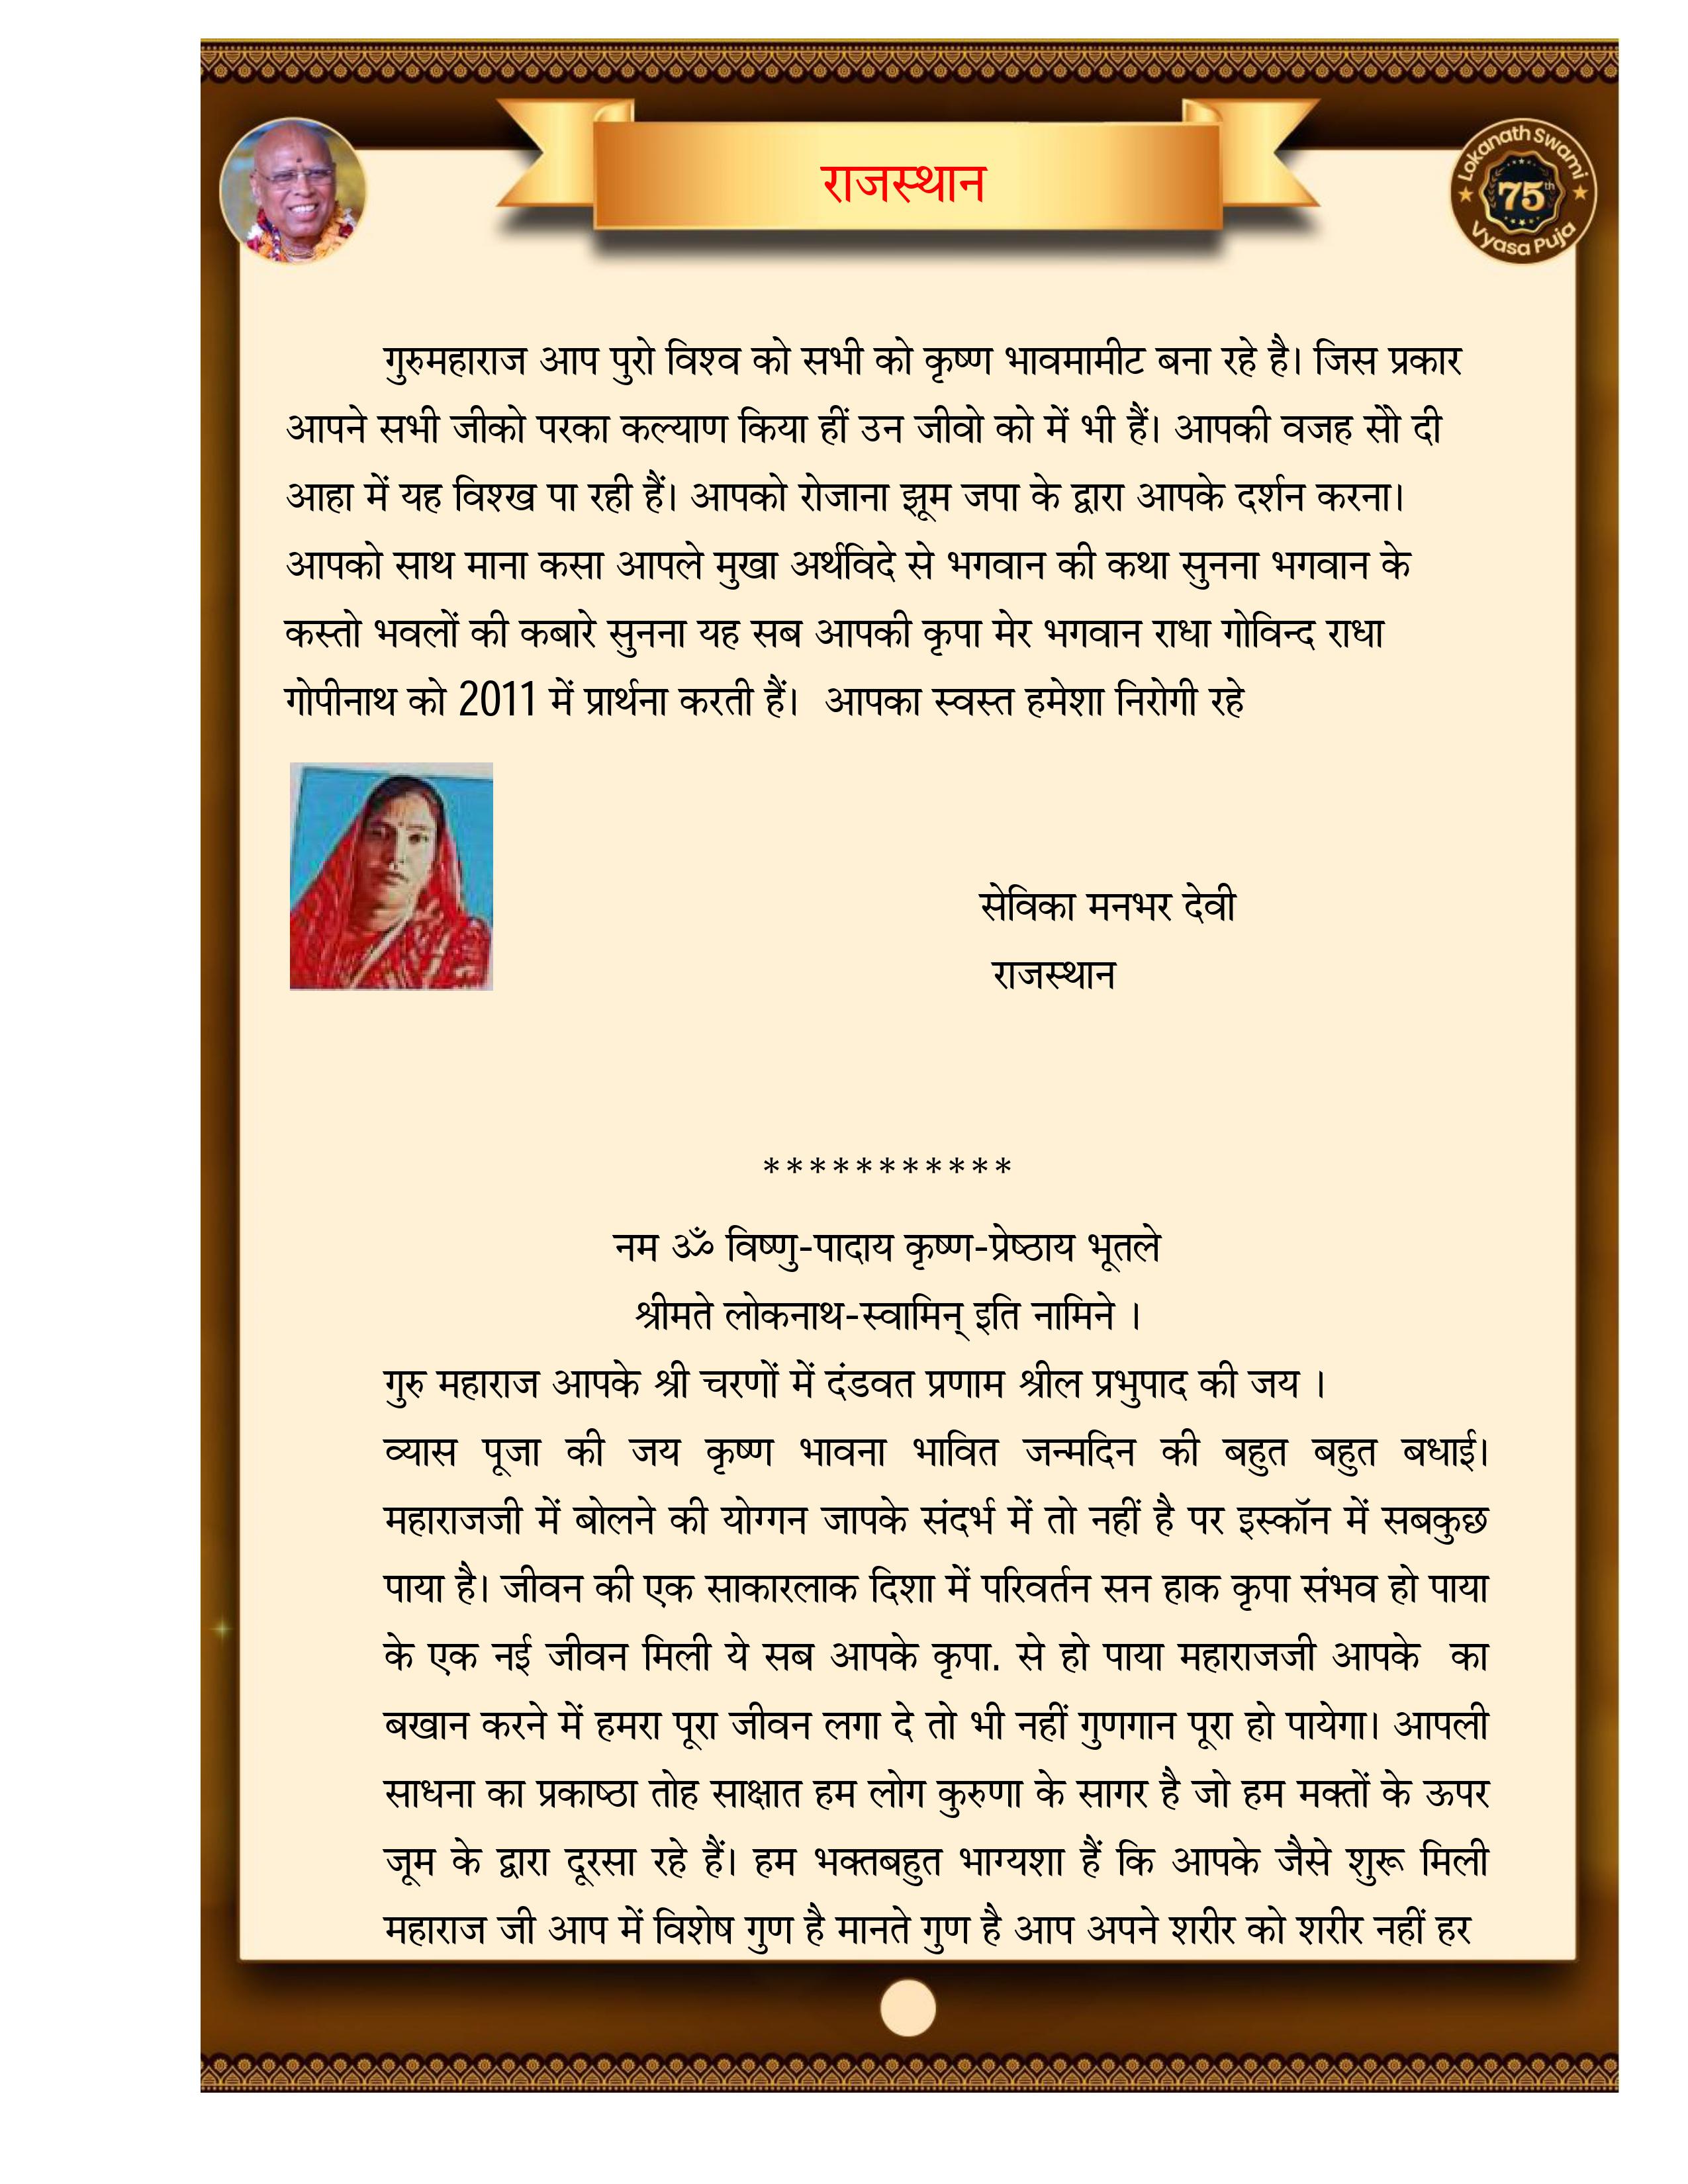 राजस्थान
Lokanath Swami
75th
Vyasa Puja
गुरुमहाराज आप पुरो विश्व को सभी को कृष्ण भावमामीट बना रहे है। जिस प्रकार
आपने सभी जीको परका कल्याण किया हीं उन जीवो को में भी हैं। आपकी वजह सेो दी
आहा में यह विश्ख पा रही हैं। आपको रोजाना झूम जपा के द्वारा आपके दर्शन करना।
आपको साथ माना कसा आपले मुखा अर्थविदे से भगवान की कथा सुनना भगवान के
कस्तो भवलों की कबारे सुनना यह सब आपकी कृपा मेर भगवान राधा गोविन्द राधा
गोपीनाथ को 2011 में प्रार्थना करती हैं। आपका स्वस्त हमेशा निरोगी रहे
सेविका मनभर देवी
राजस्थान
***********
नम ॐ विष्णु-पादाय कृष्ण-प्रेष्ठाय भूतले
श्रीमते लोकनाथ-स्वामिन् इति नामिने ।
गुरु महाराज आपके श्री चरणों में दंडवत प्रणाम श्रील प्रभुपाद की जय ।
व्यास पूजा की जय कृष्ण भावना भावित जन्मदिन की बहुत बहुत बधाई।
महाराजजी में बोलने की योग्गन जापके संदर्भ में तो नहीं है पर इस्कॉन में सबकुछ
पाया है। जीवन की एक साकारलाक दिशा में परिवर्तन सन हाक कृपा संभव हो पाया
के एक नई जीवन मिली ये सब आपके कृपा. से हो पाया महाराजजी आपके का
बखान करने में हमरा पूरा जीवन लगा दे तो भी नहीं गुणगान पूरा हो पायेगा। आपली
साधना का प्रकाष्ठा तोह साक्षात हम लोग कुरुणा के सागर है जो हम मक्तों के ऊपर
जूम के द्वारा दूरसा रहे हैं। हम भक्तबहुत भाग्यशा हैं कि आपके जैसे शुरू मिली
महाराज जी आप में विशेष गुण है मानते गुण है आप अपने शरीर को शरीर नहीं हर